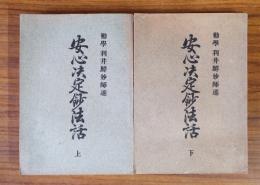 勸學 利井鮮妙師述
安心決定鈔法話
上
勸學 利井鮮妙師述
安心決定鈔法話
下